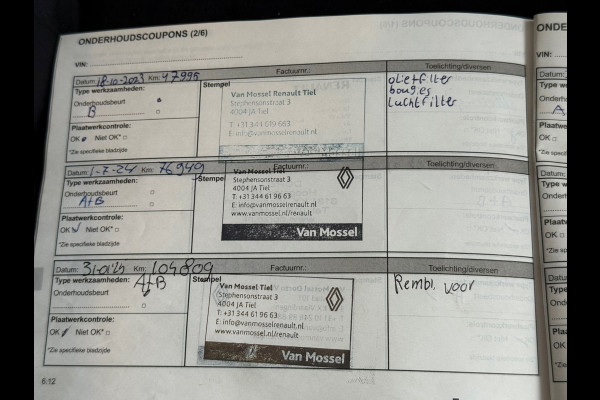 ONDERHOUDSCOUPONS (2/6)
VIN:
Factuurnr.:
Toelichting/diversen
Datum: 18-10-2023 Km: 47995
Type werkzaamheden:
Onderhoudsbeurt
B
Plaatwerkcontrole:
OK Niet OK*
*Zie specifieke bladzijde
Stempel
Van Mossel Renault Tiel
Stephensonstraat 3
4004 JA Tiel
T: +31 344 619 663
E: info@vanmosselrenault.nl
olietfilter
bougies
luchtfilter
Datum: 1-7-24 Km: 76949
Type werkzaamheden:
Onderhoudsbeurt
A+B
Plaatwerkcontrole:
OK Niet OK*
*Zie specifieke bladzijde
Factuurnr.:
Stempel
Van Mossel Tiel
Stephensonstraat 3
4004 JA Tiel
T: +31 344 61 96 63
E: info@vanmosselrenault.nl
www.vanmossel.nl/renault
Van Mossel
Toelichting/diversen
Km: 104809
Datum:
Type werkzaamheden: A+B
Onderhoudsbeurt
Plaatwerkcontrole:
OK Niet OK*
*Zie specifieke bladzijde
Factuurnr.:
Stempel
Van Mossel Tiel
Stephensonstraat 3
4004 JA Tiel
T: +31 344 61 96 63
E: info@vanmosselrenault.nl
www.vanmossel.nl/renault
Van Mossel
Toelichting/diversen
Rembl. voor
6.12